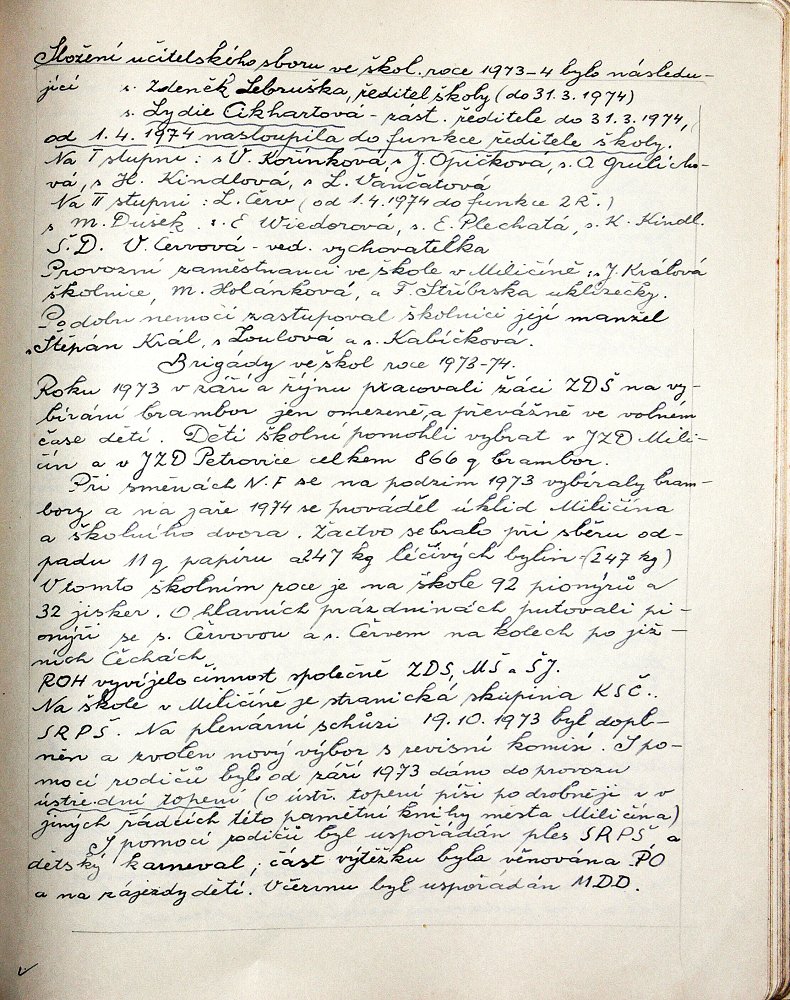 Složení učitelského sboru ve škol. roce 1973-4 bylo následu-
jící s. Zdeněk Lebruška, ředitel školy (do 31.3. 1974)
s. Lydie Cikhartová - zást. ředitele do 31.3. 1974,
od 1.4. 1974 nastoupila do funkce ředitele školy.
Na I stupni: s V. Kořínková, s J. Opičková, s. O Grulicho-
vá, s H. Kindlová, s L. Vančatova
Na II stupni: L. Červ (od 1.4.1974 do funkce ZŘ.)
s M. Dušek. s. E Wiedorová, s. E. Plechatá, s. K. Kindl.
Š.D. V. Červová - ved. vychovatelka
Provozní zaměstnanci ve škole v Miličíně: s J. Králová
školnice, M. Holánková, a F. Stříbrska uklizečky.
Po dobu nemoci zastupoval školnici její manžel
s Štěpán Král, s Loulová a s. Kabíčková.
Brigády ve škol roce 1973-74.
Roku 1973 v září a říjnu pracovali žáci ZDŠ na vy-
bírání brambor jen omezeně, a převážně ve volném
čase dětí. Děti školní pomohli vybrat v JZD Mili-
čín a v JZD Petrovice celkem 866 q brambor.
Při směnách N.F se na podzim 1973 vybíraly bram-
bory a na jaře 1974 se prováděl úklid Miličína
a školního dvora. Žactvo sebralo při sběru od-
padu 11 q papíru a 247 kg léčivých bylin - (247 kg)
V tomto školním roce je na škole 92 pionýrů a
32 jisker. O hlavních prázdninách putovali pi-
onýři se s. Červovou a s. Červem na kolech po již-
ních Čechách.
ROH vyvíjelo činnost společně ZDŠ, MŠ a ŠJ.
Na škole v Miličíně je stranická skupina KSČ..
SRPŠ. Na plenární schůzi 19.10. 1973 byl dopl-
něn a zvolen nový výbor s revisní komisí. S po-
mocí rodičů bylo od září 1973 dáno do provozu
ústřední topení (o ústř. topení píši podrobněji v
jiných řádcích této pamětní knihy města Miličína)
S pomocí rodičů byl uspořádán ples SRPŠ a
dětský karneval; část výtěžku byla věnována PO
a na zájezdy dětí. V červnu byl uspořádán MDD.